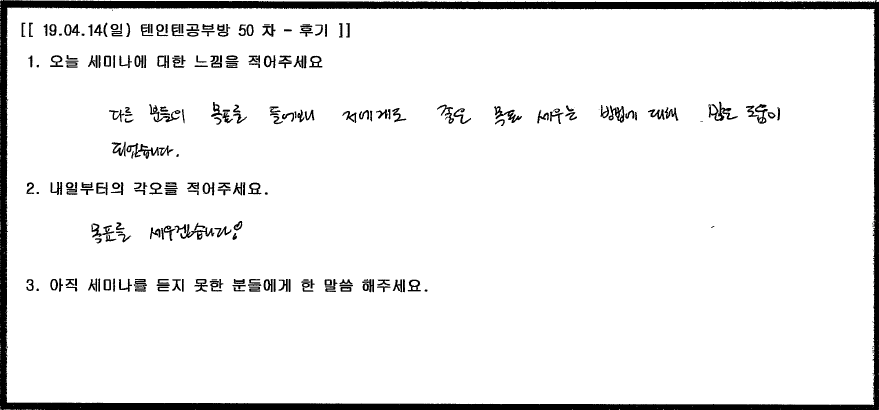 [[ 19.04.14(일) 텐인텐공부방 50 차 - 후기 ]]
1. 오늘 세미나에 대한 느낌을 적어주세요
다른 분들의 목표를 들어보니 저에게도 좋은 목표 세우는 방법에 대해 많은 도움이
되었습니다.
2. 내일부터의 각오를 적어주세요.
목표를 세우겠습니다!
3. 아직 세미나를 듣지 못한 분들에게 한 말씀 해주세요.